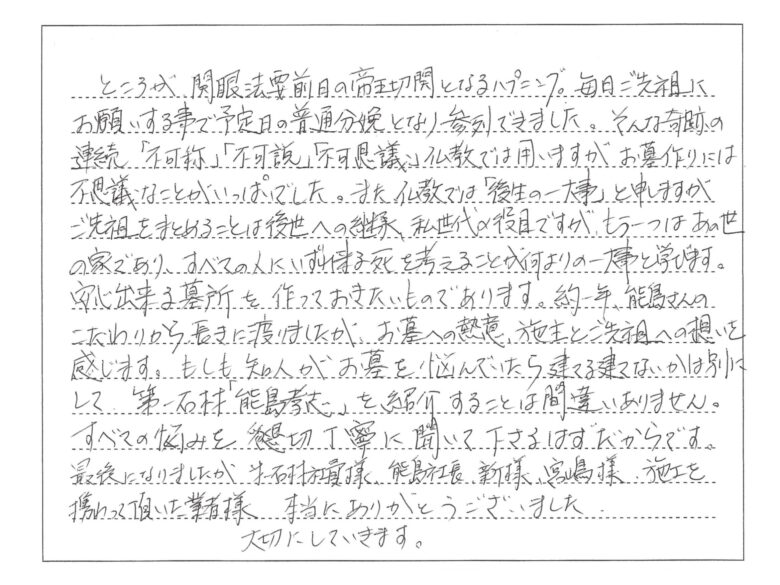 ところが 開眼法要前日の帝王切開となるハプニング。毎日ご先祖に
お願いする事で予定日の普通分娩となり参列できました。そんな奇跡の
連続 「不可称」「不可説」「不可思議」仏教では用いますが お墓作りには
不思議なことがいっぱいでした。また仏教では「後生の一大事」と申しますが
ご先祖をまとめることは後世への継承、私世代の役目ですが、もう一つは あの世
の家であり、すべての人にいずれ来る死を考えることが何よりの一大事と学びます。
安心出来る墓所を作っておきたいものであります。約一年、能島さんの
こだわりから長きに渡りましたが、お墓への熱意、施主とご先祖への想いを
感じます。もしも知人がお墓を悩んでいたら建てる建てないかは別に
して 第一石材「能島孝志」を紹介することは間違いありません。
すべての悩みを 懇切丁寧に聞いて下さるはずだからです。
最後になりましたが 石材社員様、能島社長、新様、宮嶋様 施工を
携わって頂いた業者様 本当にありがとうございました
大切にしていきます。